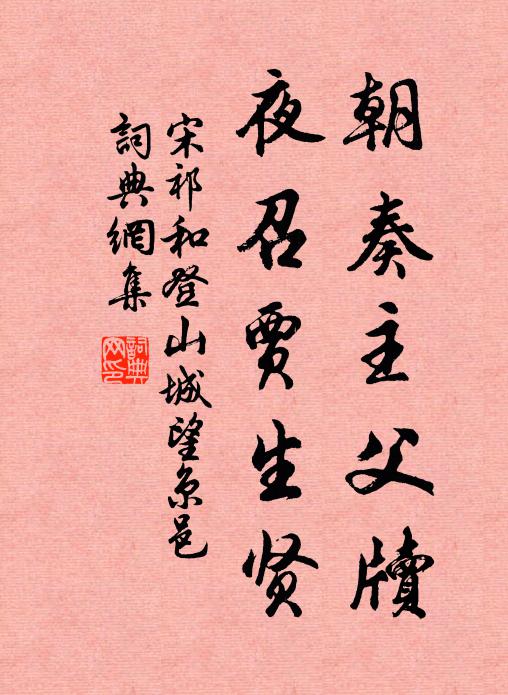 朝奏主父牍
夜召贾生贤
宋祁和登山城望京邑
詞典網集
詞典
网印